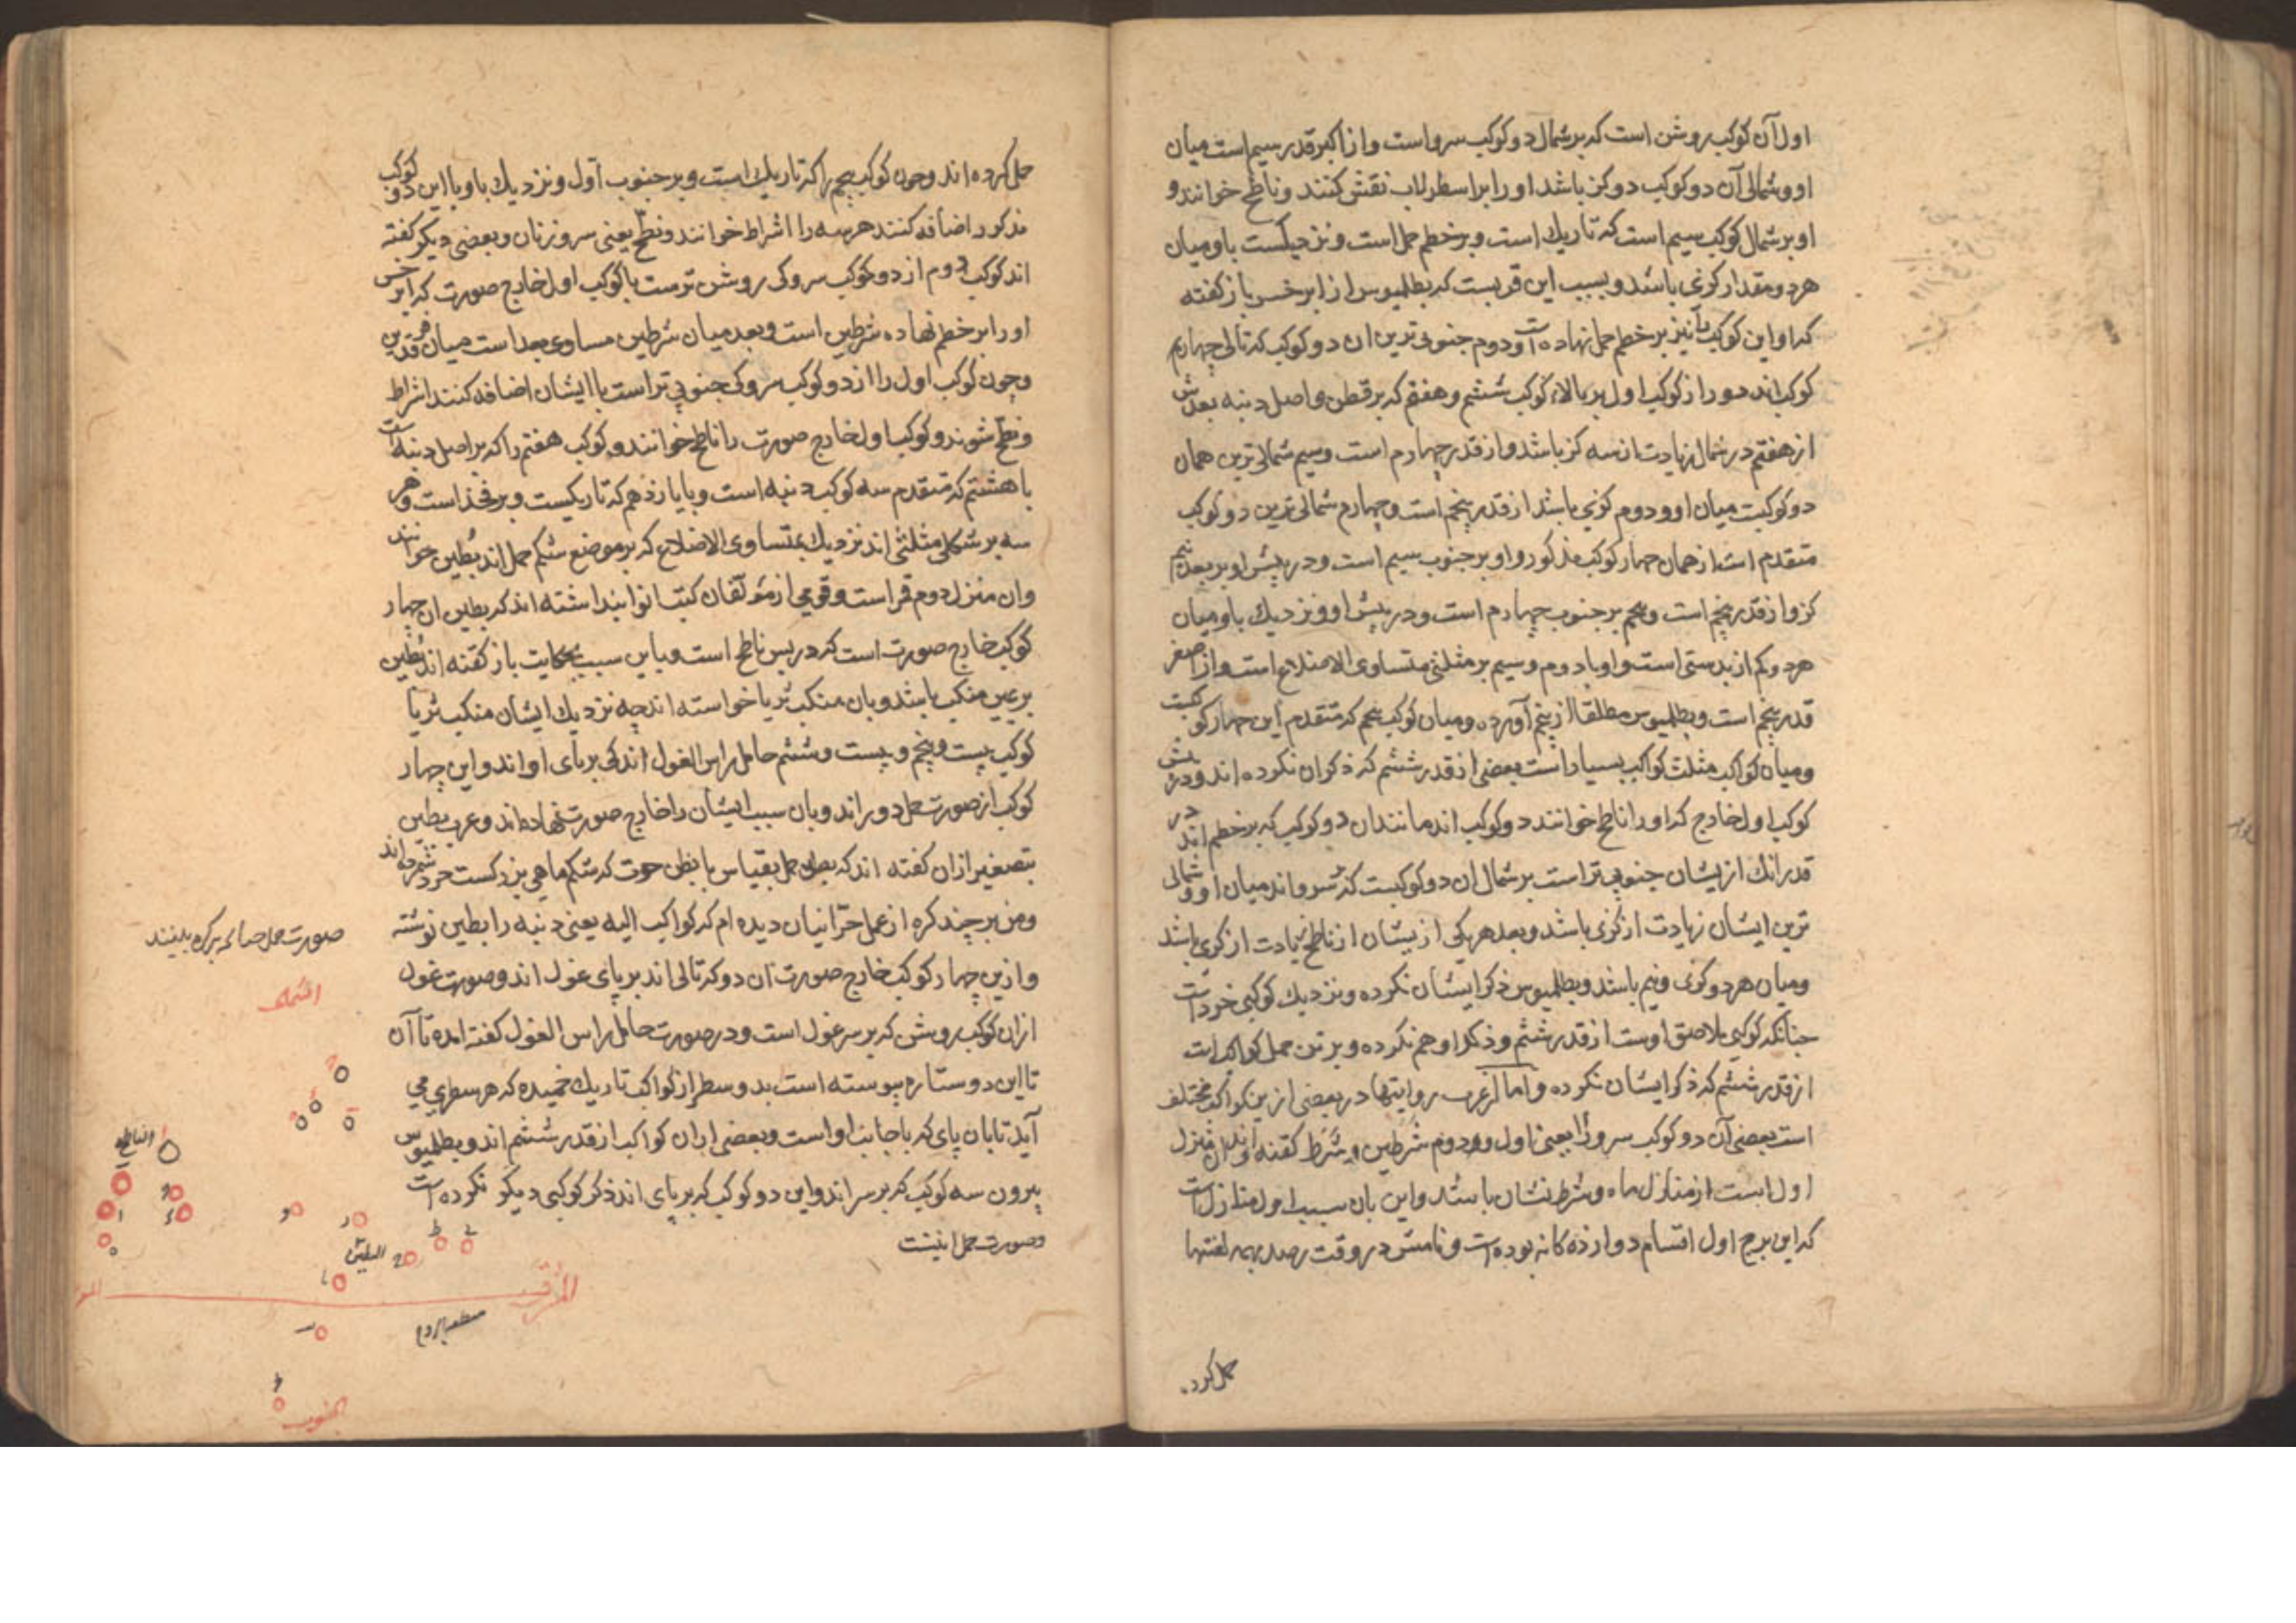 اول آن کوکب روشن است که بر شمال دو کوکب سر و است و از اکبر قدر سیم است میان
او و شمالی آن دو کوکب دو کز باشد او را بر اسطرلاب نقش کنند و ناطح خوانند و
او بر شمال کوکب سیم است که تاریک است و بر خطم حمل است و نزدیکست باو میان
هر دو مقدار کزی باشد و بسبب این قربست که بطلمیوس از ابرخس باز کفته
که او این کوکب را نیز بر خطم حمل نهاده است و دوم جنوبی ترین ان دو کوکب که تالی چهارم
کوکب اند دور از کوکب اول بر بالاء کوکب ششم و هفتم که بر قطن و اصل دنبه بعدش
از هفتم در شمال زیادت از سه کز باشد و از قدر چهارم است و سیم شمالی ترین همان
دو کوکبت میان او و دوم کزی باشد از قدر پنجم است و چهارم شمالی ترین دو کوکب
متقدم است از همان چهار کوکب مذکور و او بر جنوب سیم است و در پیش او بر بعد نیم
کز و از قدر پنجم است و پنجم بر جنوب چهارم است و در پیش او و نزدیک باو میان
هر دو کم از بدستی است و او با دوم و سیم بر مثلثی متساوی الاضلاع است و از اصغر
قدر پنجم است و بطلمیوس مطلقا از پنجم آورده و میان کوکب پنجم که متقدم این چهار کوکبست
و میان کواکب مثلث کواکب بسیار است بعضی از قدر ششم که ذکر ان نکرده اند و در پیش
کوکب اول خارج که او را ناطح خوانند دو کوکب اند مانند ان دو کوکب که بر خطم اند در
قدر انک ازیشان جنوبی تر است بر شمال ان دو کوکبست که بر سر و اند میان او و شمالی
ترین ایشان زیادت از کزی باشد و بعد هر یکی ازیشان از ناطح زیادت از کزی باشد
و میان هر دو کزی و نیم باشد و بطلمیوس ذکر ایشان نکرده و نزدیک کوکبی خرد است
جنانکه کوکبی ملاصق اوست از قدر ششم و ذکر او هم نکرده و بر تن حمل کواکب است
از قدر ششم که ذکر ایشان نکرده و اما از عرب روایتها در بعضی ازین کواکب مختلف
است بعضی آن دو کوکب سر و را یعنی اول و دوم شرطین و شرط کفته اند و ان منزل
اول است از منازل ماه و شرط نشان باشد و این بان سبب اول منازل است
که این برج اول اقسام دوازده کانه بوده است و نامش در وقت رصد بهمه لغتها
حمل کرد.
حمل کرده اند و چون کوکب پنجم را که تاریک است و بر جنوب اول و نزدیک باو با این دو کوکب
مذکور اضافه کنند هر سه را اشراط خوانند و نطح یعنی سرو زنان و بعضی دیکر کفته
اند کوکب دوم از دو کوکب سر و کی روشن ترست با کوکب اول خارج صورت که ابرخس
او را بر خطم نهاده شرطین است و بعد میان شرطین مساوی بعد است میان فرقدین
و چون کوکب اول را از دو کوکب سر و کی جنوبی تر است با ایشان اضافه کنند اشراط
و نطح شوند و کوکب اول خارج صورت را ناطح خوانند و کوکب هفتم را که بر اصل دنبه است
با هشتم که متقدم سه کوکب دنبه است و با یازدهم که تاریکست و بر فخذ است و هر
سه بر شکل مثلثی اند نزدیک بمتساوی الاضلاع که بر موضع شکم حمل اند بطین خوانند
وان منزل دوم قمر است و قومی از مؤلفان کتب انوا پنداشته اند که بطین ان چهار
کوکب خارج صورت است که در پس ناطح است و باین سبب بحکایت باز کفته اند بطین
بر عین منکب باشد و بان منکب ثریا خواسته اند چه نزدیک ایشان منکب ثریا
کوکب بیست و پنجم و بیست و ششم حامل راس الغول اند کی بر پای او اند و این چهار
کوکب از صورت حمل دور اند و بان سبب ایشان را خارج صورت نهاده اند و عرب بطین
بتصغیر ازان کفته اند که بطن حمل بقیاس با بطن حوت که شکم ماهی بزرکست خرد شمرده اند
و من بر چند کره از عمل حرانیان دیده ام که کواکب الیه یعنی دنبه را بطین نوشته
و ازین چهار کوکب خارج صورت ان دو که تالی اند بر پای غول اند و صورت غول
ازان کوکب روشن که بر سر غول است و در صورت حامل راس الغول کفته امده تا آن
تا این دو ستاره پیوسته است بدو سطر از کواکب تاریک خمیده که هر سطری می
آید تا بان پای که با جانب او است و بعضی ازان کواکب از قدر ششم اند و بطلمیوس
بیرون سه کوکب که بر سر اند و این دو کوکب که بر پای اند ذکر کوکبی دیکر نکرده است
و صورت حمل اینست
صورت حمل جنانکه بر کره بینند
الشمال
الناطح
البطین
المشرق
الجنوب